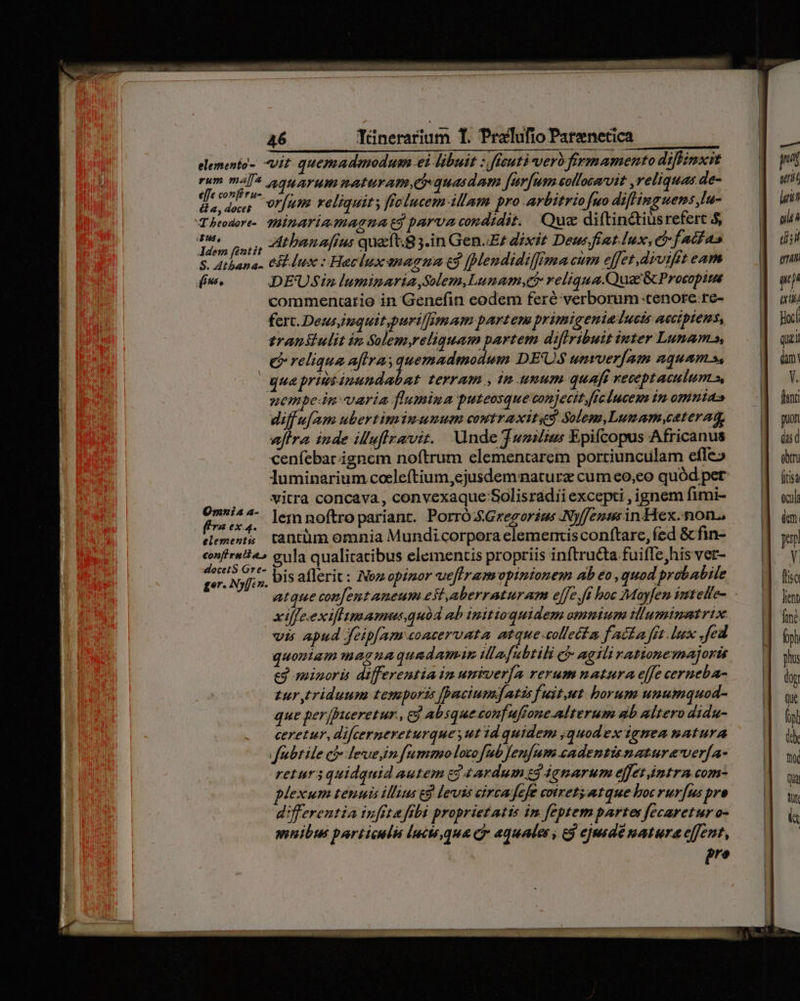 46 Itinerarium I. Prælusio Parænetica
elemento- vit quemadmodum ei libuit : sicuti verò firmamento distinxit
rum massa aquarum naturam, & quasdam sursum collocavit, reliquas de-
esse constru-
cta, docet orsum reliquit; sic lucem illam pro arbitrio suo distinguens, lu-
Theodore- minaria magna & parva condidit. Quæ distinctiùs refert S.
tus.
Idem sentit Athanasius quæst. 83. in Gen. Et dixit Deus fiat lux, & facta
S. Athana- est lux : Hæc lux magna & splendidissima cùm esset, divisit eam
sius. DEUS in luminaria, Solem, Lunam, & reliqua. Quæ & Procopius
commentario in Genesin eodem ferè verborum tenore re-
fert. Deus, inquit, purissimam partem primigeniæ lucis accipiens,
transtulit in Solem, reliquam partem distribuit inter Lunam,
& reliqua astra; quemadmodum DEUS universam aquam,
qua priùs inundabat terram, in unum quasi receptaculum,
nempe in varia flumina puteosque conjecit, sic lucem in omnia
diffusam ubertim in unum contraxit, & Solem, Lunam, cæteraq;
astra inde illustravit. Unde Junilius Episcopus Africanus
censebat ignem nostrum elementarem portiunculam esse
luminarium cœlestium, ejusdem naturæ cum eo, eo quòd per
vitra concava, convexaque Solis radii excepti, ignem simi-
Omnia a-
stra ex 4. lem nostro pariant. Porrò S. Gregorius Nyssenus in Hexæ. non
elementis tantùm omnia Mundi corpora elementis constare, sed & sin-
constructa gula qualitatibus elementis propriis instructa fuisse, his ver-
docet S Gre-
gor. Nyssen. bis asserit : Non opinor vestram opinionem ab eo, quod probabile
atque consentaneum est, aberraturam esse, si hoc Moysen intelle-
xisse existimamus, quòd ab initio quidem omnium illuminatrix
vis apud seipsam coacervata atque collecta facta sit lux, sed
quoniam magna quadam in illa subtili & agili ratione majoris
& minoris differentia in universa rerum natura esse cerneba-
tur, triduum temporis spacium satis fuit, ut horum unumquod-
que perspiceretur, & absque confusione alterum ab altero didu-
ceretur, discerneretur que; ut id quidem, quod ex ignea natura
subtile & leve, in summo loco sub sensum cadentis naturæ versa-
retur; quidquid autem & tardum & ignarum esset, intra com-
plexum tenuis illius & levis circa sese coiret; atque hoc rursus pro
differentia insita sibi proprietatis in septem partes secaretur o-
mnibus particulis lucis, quæ & æquales, & ejusdē naturæ essent,
pro